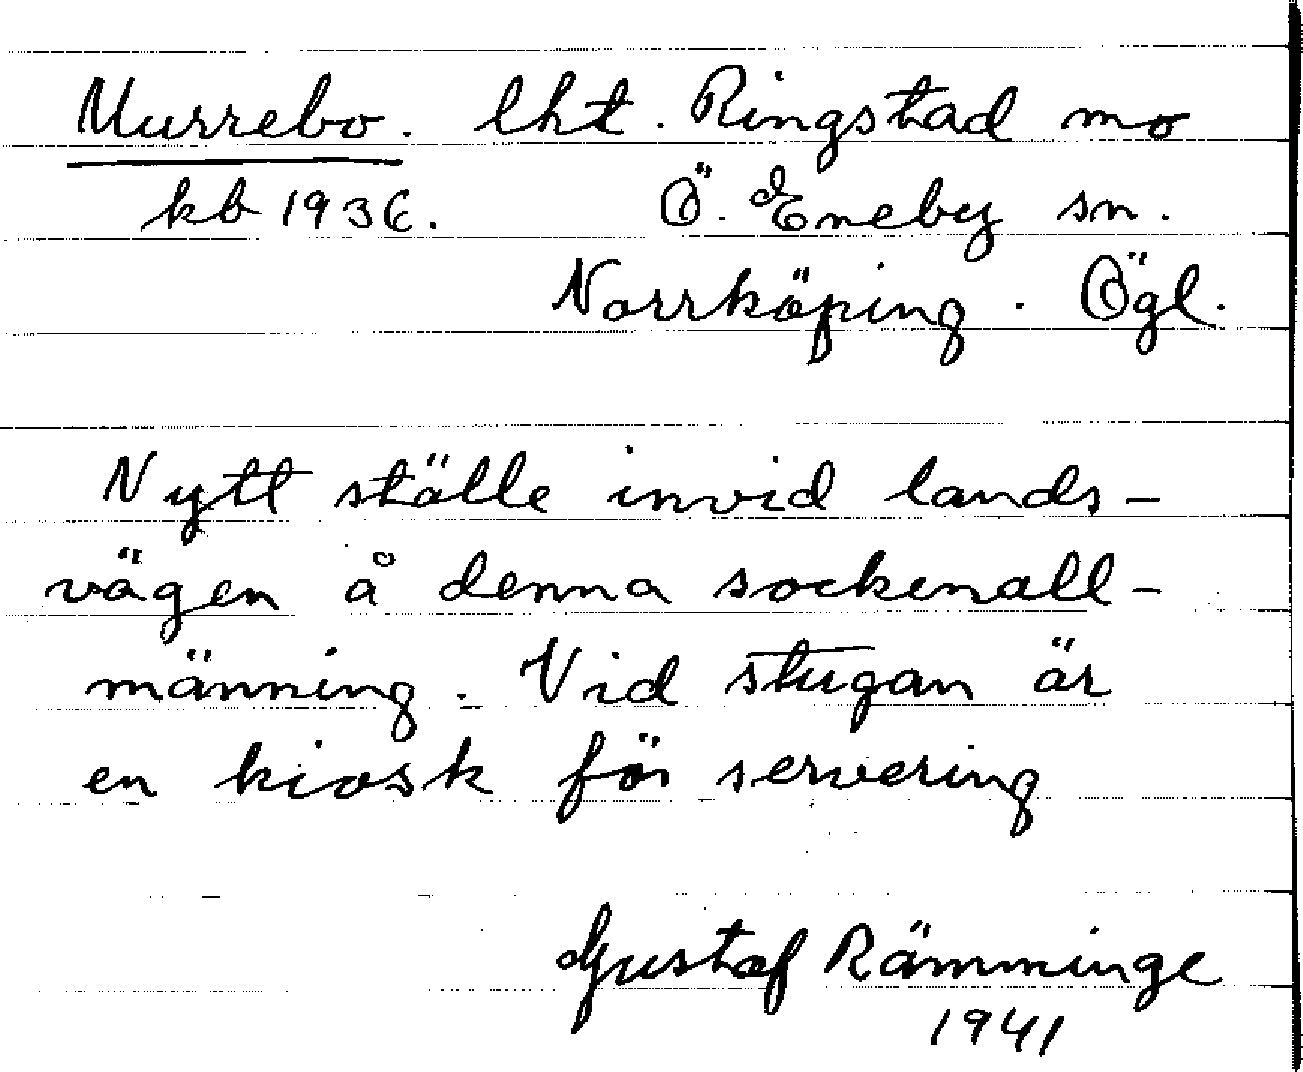 Murrebo. lht. Ringstad mo
kb 1936. Ö. Eneby sn.
Norrköping. Ögl.
Nytt ställe invid lands-
vägen å denna sockenall-
männing. Vid stugan är
en kiosk för servering
Gustaf Rämminge
1941